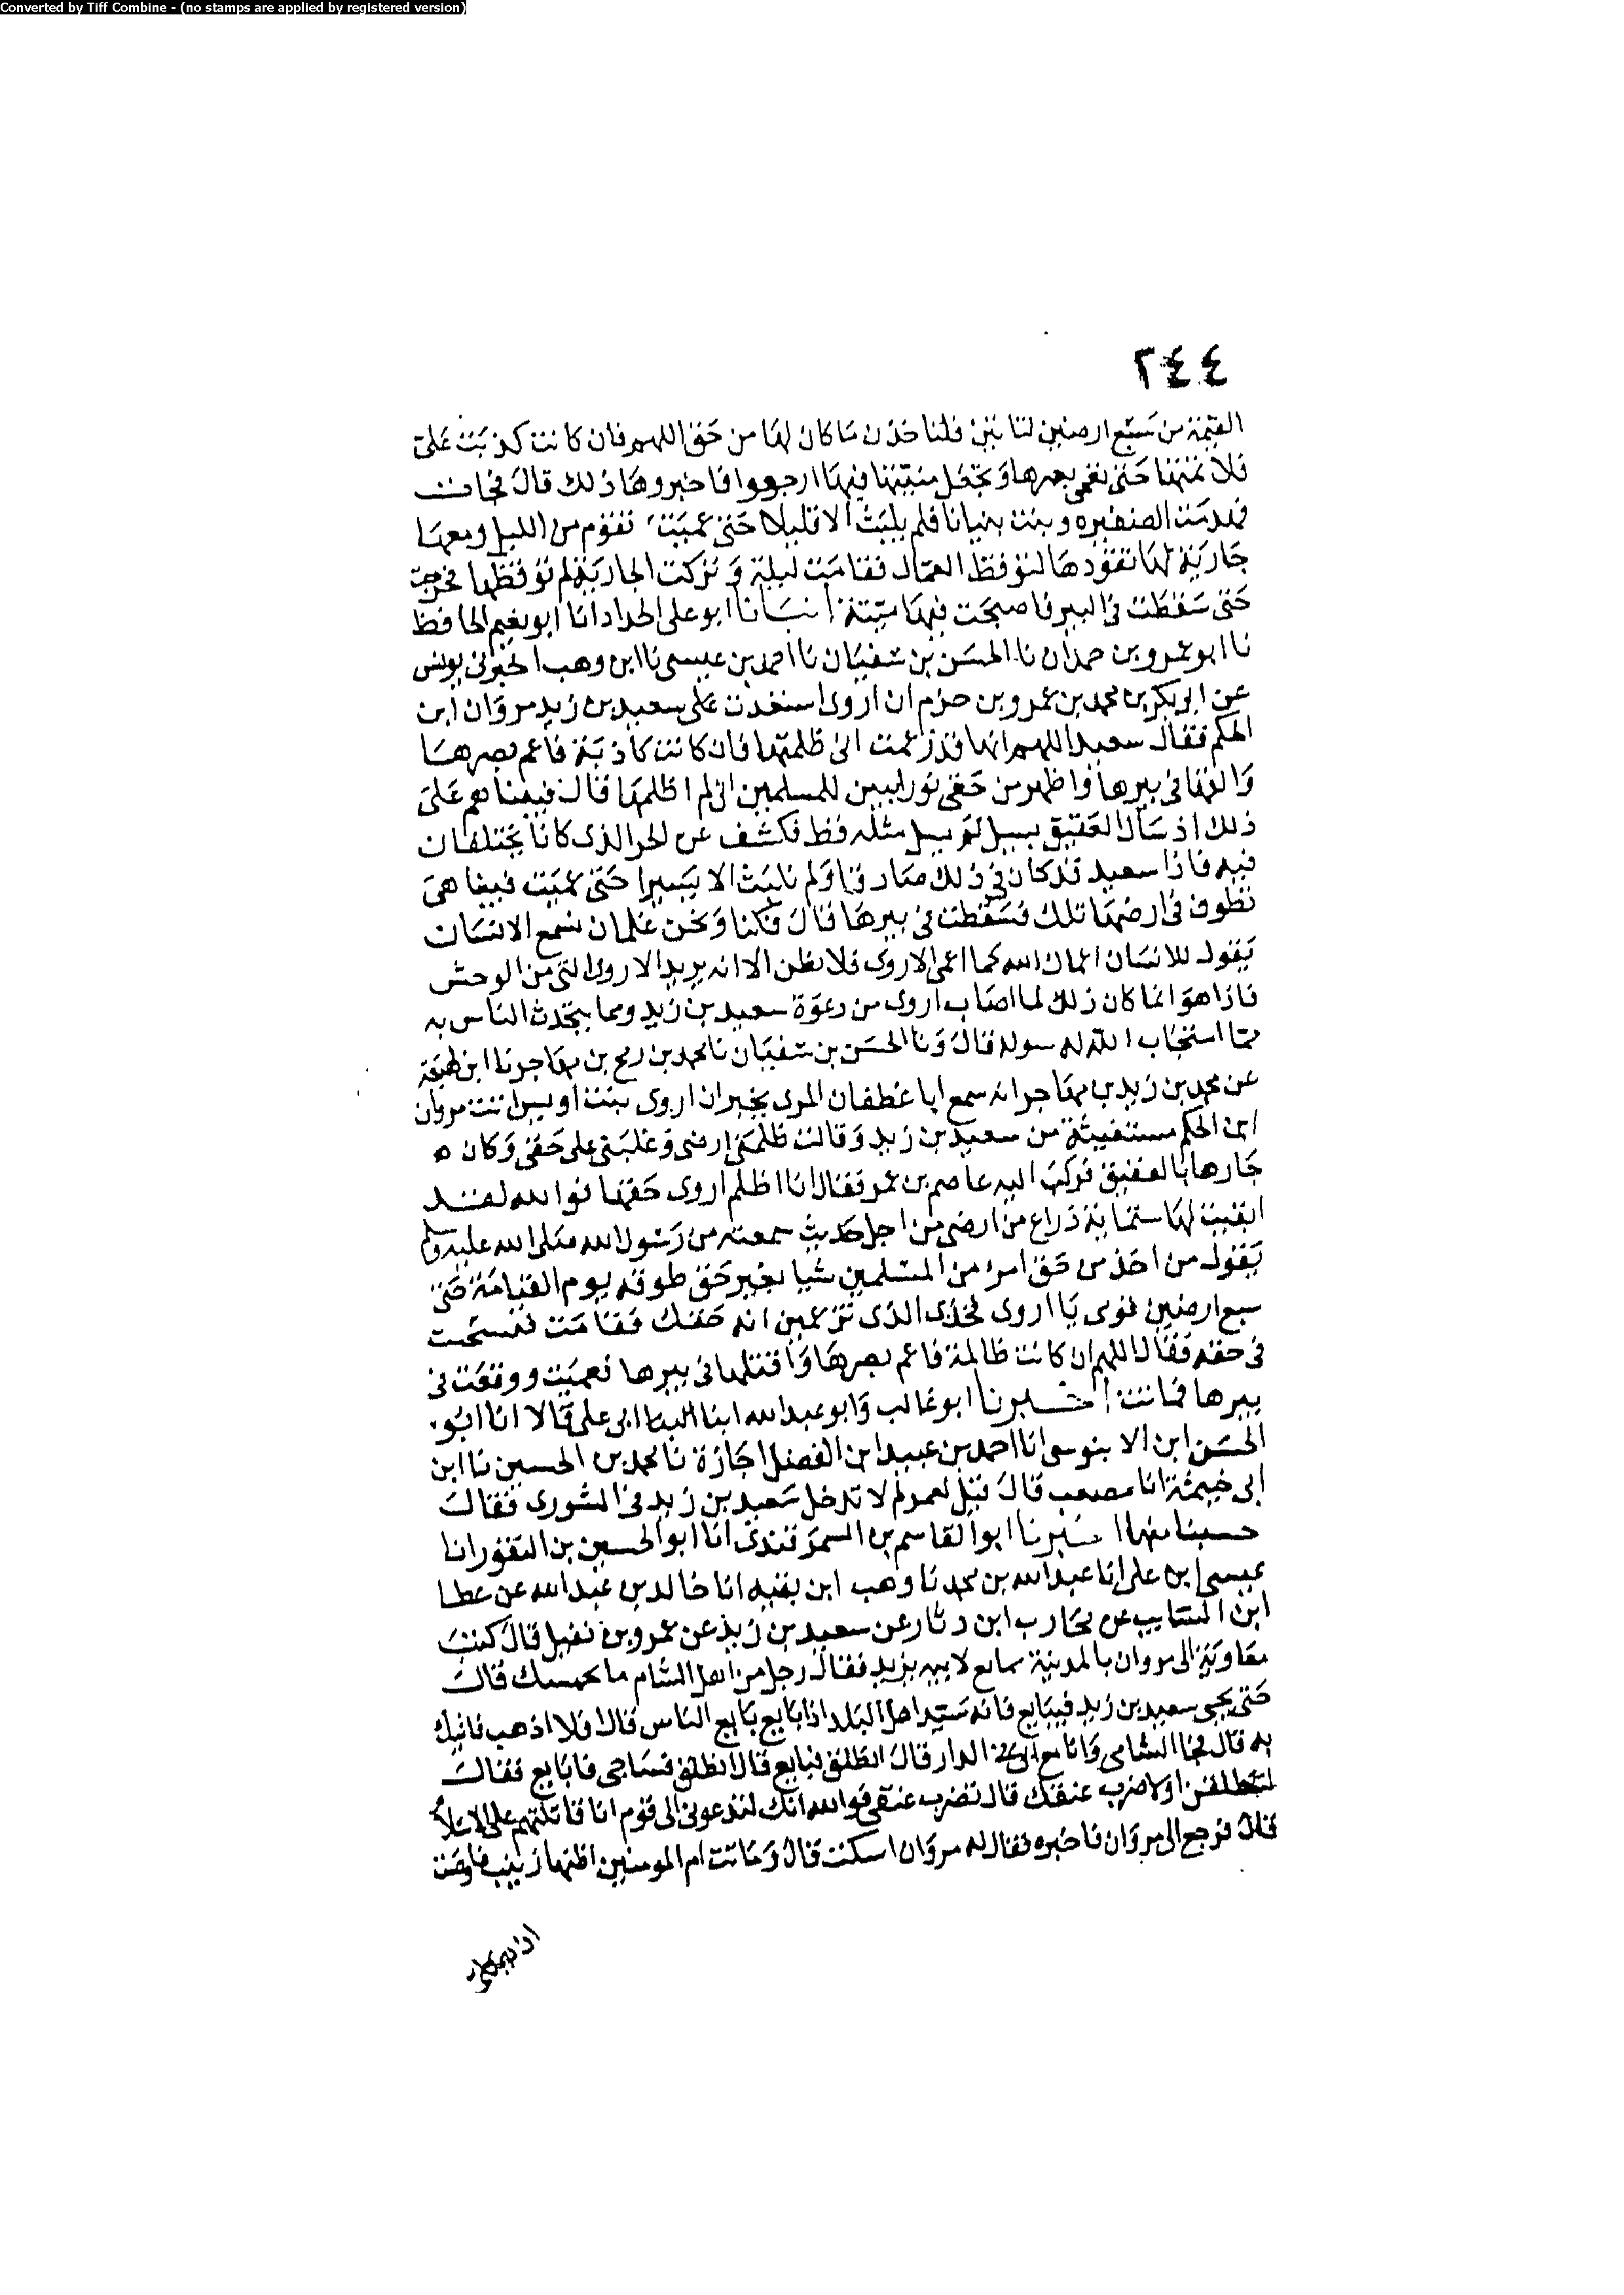 Converted by Tiff Combine - (no stamps are applied by registered version)
٢٤٤
القيمة من سبع ارضين لتاتين فلناخذن ما كان لها من حق اللهم فان كانت كذبت على
فلا تمتها حتى تعمى بصرها وتجعل منيتها فيها ارجعوا فاخبروها ذلك قال فجات
فهدمت الصفيره وبنت بنيانا فلم يلبث الا قليلا حتى عميت تقوم من الليل ومعها
جارية لها تقودها لتوقظ العمال فقامت ليلة وتركت الجارية لم توقظها فخرجت
حتى سقطت في البير فاصبحت فيها ميتة انبانا ابو على الحداد انا ابو نعيم الحافظ
نا ابو عمرو بن حمدان نا الحسن بن سفيان نا احمد بن عيسى نا ابن وهب اخبرنى يونس
عن ابو بكر بن محمد بن عمرو بن حزم ان اروى استعدت على سعيد بن زيد مروان ابن
الحكم فقال سعيد اللهم انها قد زعمت انى ظلمتها فان كانت كاذبة فاعم بصرها
والقها في بيرها واظهر من حقى نورا يبين للمسلمين انى لم اظلمها قال فبيناهم على
ذلك اذ سال العقيق بسيل لم يسل مثله قط فكشف عن الحر الذى كانا يختلفان
فيه فاذا سعيد قد كان في ذلك صادقا ولم تلبث الا يسيرا حتى عميت فبينا هى
تطوف في ارضها تلك فسقطت في بيرها قال فكنا ونحن غلمان نسمع الانسان
يقول للانسان اعماك الله كما اعمى الاروى فلا نظن الا انه يريد الاروى التى من الوحش
فاذا هو انما كان ذلك لما اصاب اروى من دعوة سعيد بن زيد ومما يتحدث الناس به
مما استجاب الله له سوله قال ونا الحسن بن سفيان نا محمد بن رمح بن مهاجر نا ابن لهيعة
عن محمد بن زيد بن مهاجر انه سمع ابا غطفان المرى يخبر ان اروى بنت اويس اتت مروان
ابن الحكم مستغيثة من سعيد بن زيد وقالت ظلمنى ارضى وغلبنى على حقى وكان
جارها بالعقيق فركب اليه عاصم بن عمر فقال انا اظلم اروى حقها فوالله لقد
القيت لها ستماية ذراع من ارضى من اجل حديث سمعته من رسول الله صلى الله عليه وسلم
يقول من اخذ من حق امرء من المسلمين شيا بغير حق طوقه يوم القيامة حتى
سبع ارضين قومى يا اروى فخذى الذى تزعمين انه حقك فقامت فتسحبت
في حقه فقال اللهم ان كانت ظالمة فاعم بصرها واقتلها في بيرها فعميت ووقعت في
بيرها فماتت اخبرنا ابو غالب وابو عبد الله ابنا البنا ابى على قالا انا ابو
الحسن ابن الابنوسى انا احمد بن عبيد ابن الفضل اجازة نا محمد بن الحسين نا ابن
ابى خيثمة انا مصعب قال قيل لعمر لم لا تدخل سعيد بن زيد في الشورى فقال
حسبنا منها اخبرنا ابو القاسم بن السمرقندى انا ابو الحسين بن النقور انا
عيسى بن على انا عبد الله بن محمد نا وهب ابن بقيه انا خالد بن عبد الله عن عطا
ابن السايب عن محارب ابن دثار عن سعيد بن زيد عن عمرو بن نفيل قال كتب
معاوية الى مروان بالمدينة يبايع لابنه يزيد فقال رجل من اهل الشام ما يحبسك قال
حتى يجى سعيد بن زيد فيبايع فانه سيد اهل البلد اذا بايع بايع الناس قال افلا اذهب فاتيك
به قال فجا الشامى وانا مع ابى في الدار قال انطلق فبايع قال انطلق فساجى فابايع فقال
لتنطلقن او لاضرب عنقك قال تضرب عنقى فوالله انك لتدعونى الى قوم انا قاتلتهم على الاسلام
قال فرجع الى مروان فاخبره فقال له مروان اسكت قال وماتت ام المومنين اظنها زينب فاوصت